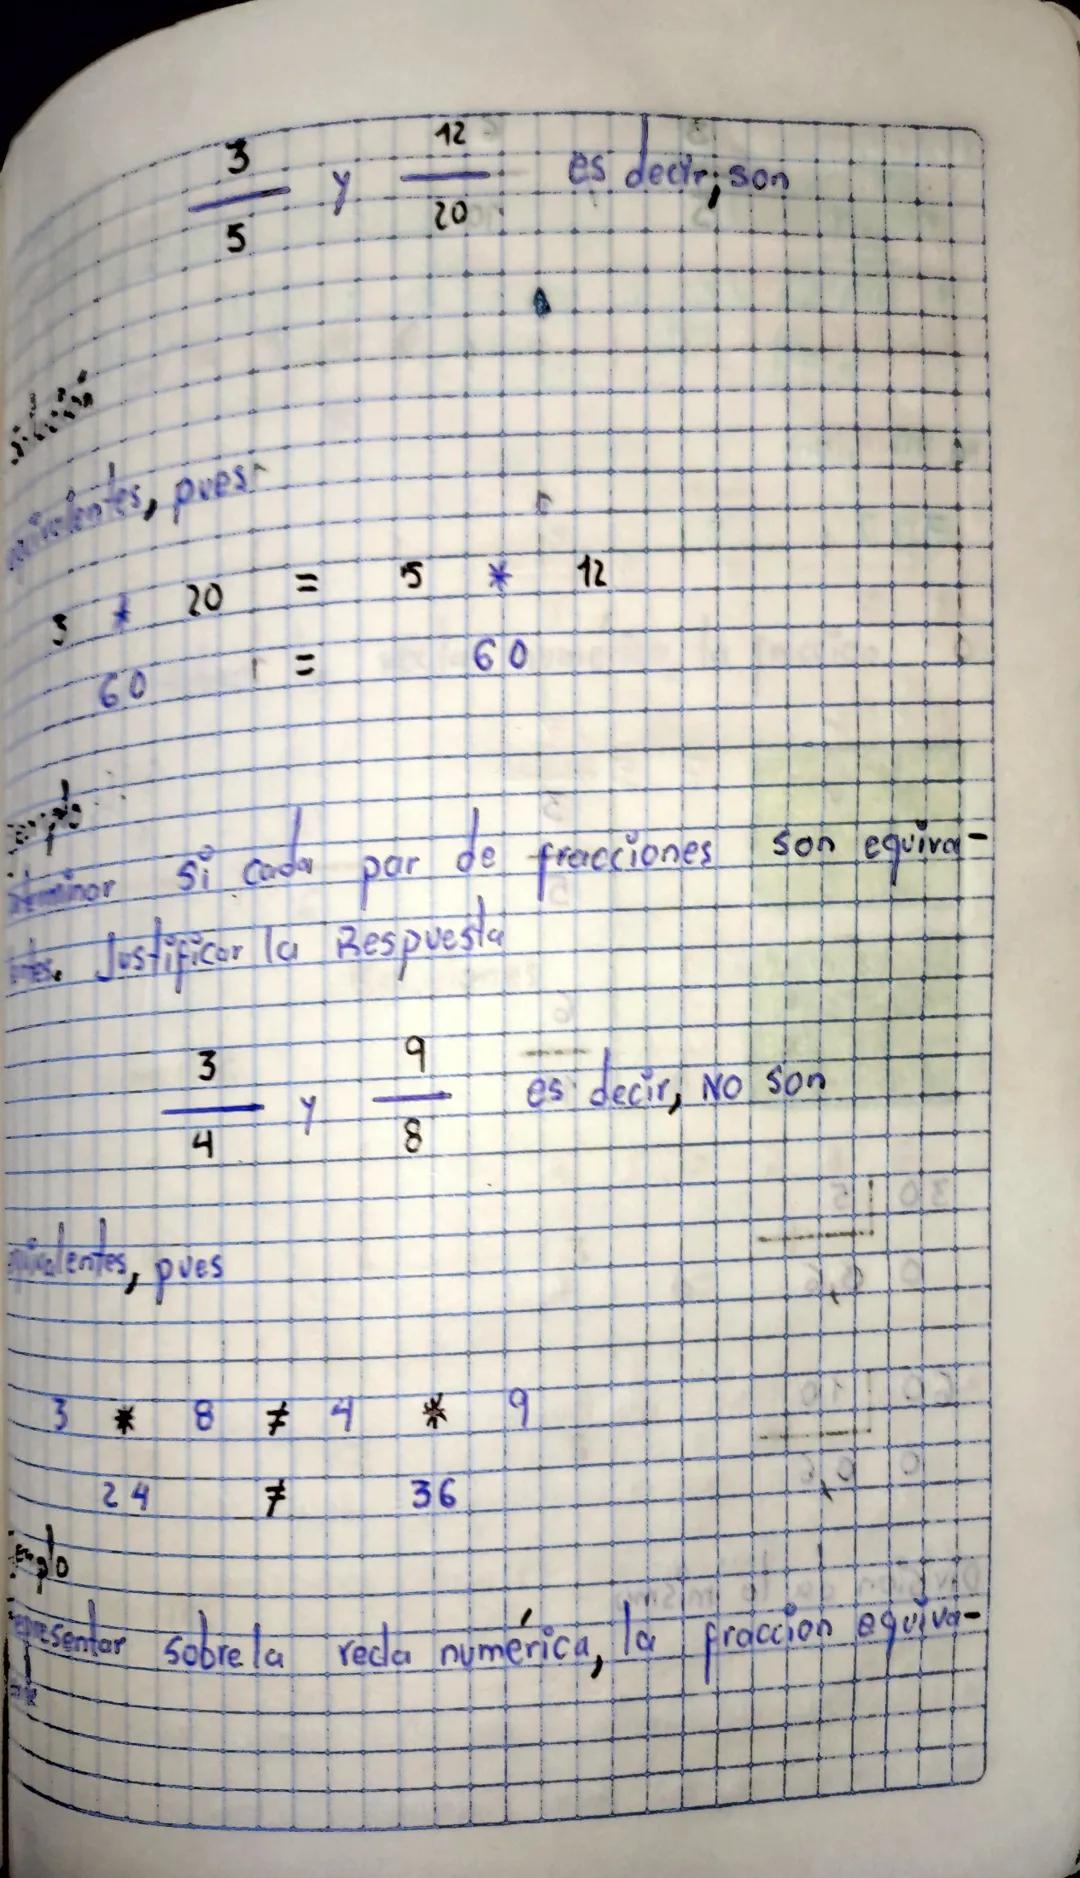 3/5 y 12/20 es decir, son
equivalentes, pues
3 * 20 = 5 * 12
60 = 60
si cada par de fracciones son equiva-
Justificar la Respuesta
3/4 y 9/8 es decir, NO son
equivalentes, pues
3 * 8 ≠ 4 * 9
24 ≠ 36
representar sobre la recta numérica, la fraccion equiva-